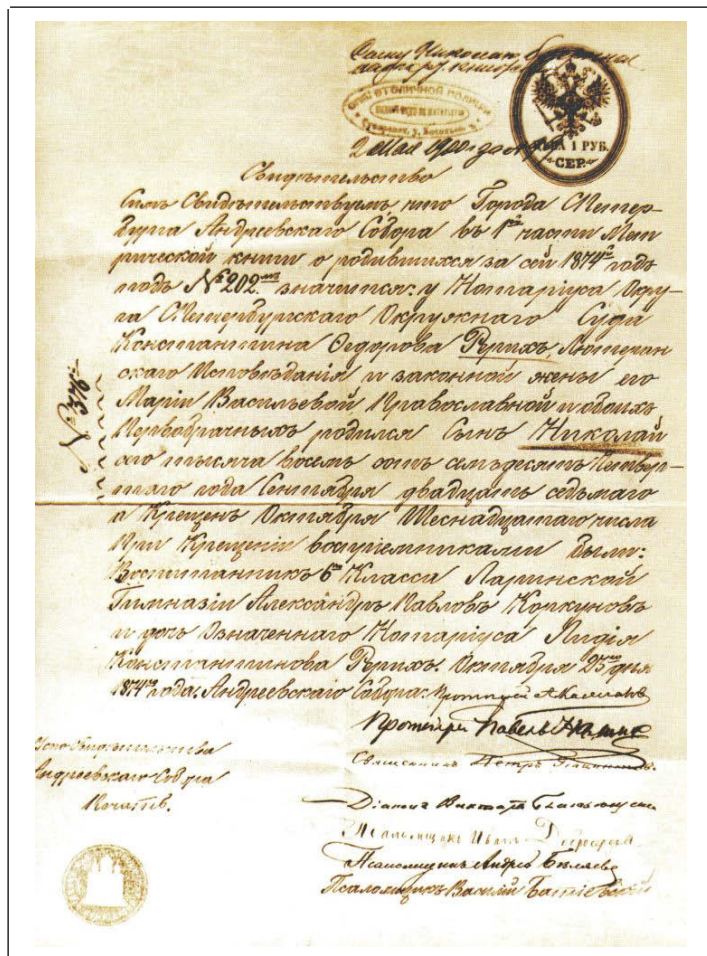 2 Мая 1900 года
ЦѢНА 1 РУБ.
СЕР.
Свидѣтельство
Симъ Свидѣтельствуемъ что Города С.Петер-
бурга Андреевскаго Собора въ 1й части Мет
рической книги о родившихся за сей 1874й годъ
подъ № 202мъ значится: у Нотаріуса Окру-
га С.Петербургскаго Окружнаго Суда
Константина Федорова Рерихъ, Лютеран
скаго Исповѣданія и законной жены его
Маріи Васильевой Православной и обоихъ
Первобрачныхъ родился Сынъ Николай
тысяча восемь сотъ семьдесятъ Четвер-
таго года Сентября двадцать седьмаго
а Крещенъ Октября Шеснадцатаго числа
При Крещеніи воспріемниками были:
Воспитанникъ 6го Класса Ларинской
Гимназіи Александръ Павловъ Коркуновъ
и дочь Означеннаго Нотаріуса Лидія
Константинова Рерихъ. Октября 25го дня
1874го года. Андреевскаго Собора: Протоіерей
Протоіерей Павелъ
Священникъ Петръ
№ 376
свидѣтельства
Андреевскаго Собора
Діаконъ Викторъ
Псаломщикъ Иванъ
Псаломщикъ Андрей Бѣляевъ
Псаломщикъ Василій